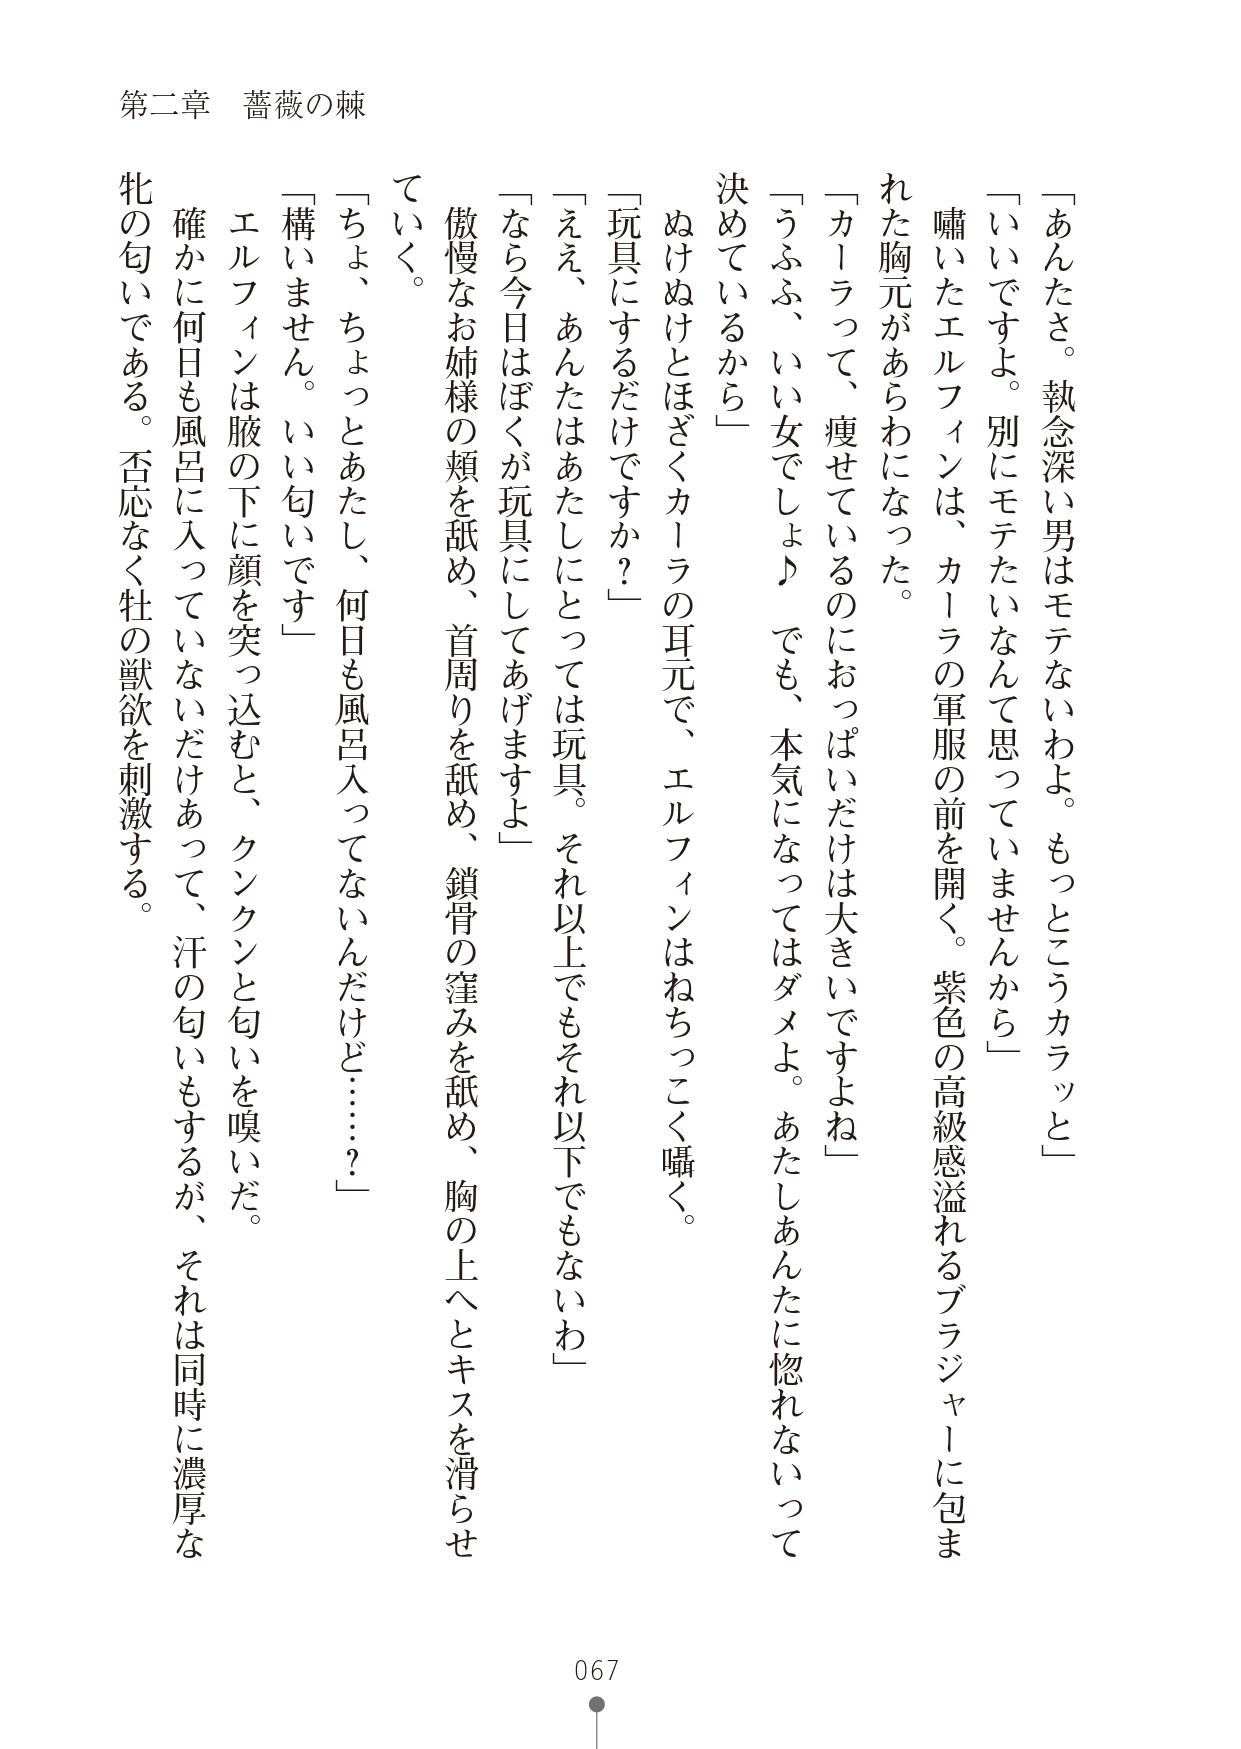 第二章　薔薇の棘
「あんたさ。執念深い男はモテないわよ。もっとこうカラッと」
「いいですよ。別にモテたいなんて思っていませんから」
　嘯いたエルフィンは、カーラの軍服の前を開く。紫色の高級感溢れるブラジャーに包ま
れた胸元があらわになった。
「カーラって、痩せているのにおっぱいだけは大きいですよね」
「うふふ、いい女でしょ♪　でも、本気になってはダメよ。あたしあんたに惚れないって
決めているから」
　ぬけぬけとほざくカーラの耳元で、エルフィンはねちっこく囁く。
「玩具にするだけですか？」
「ええ、あんたはあたしにとっては玩具。それ以上でもそれ以下でもないわ」
「なら今日はぼくが玩具にしてあげますよ」
　傲慢なお姉様の頬を舐め、首周りを舐め、鎖骨の窪みを舐め、胸の上へとキスを滑らせ
ていく。
「ちょ、ちょっとあたし、何日も風呂入ってないんだけど……？」
「構いません。いい匂いです」
　エルフィンは腋の下に顔を突っ込むと、クンクンと匂いを嗅いだ。
　確かに何日も風呂に入っていないだけあって、汗の匂いもするが、それは同時に濃厚な
牝の匂いである。否応なく牡の獣欲を刺激する。
067